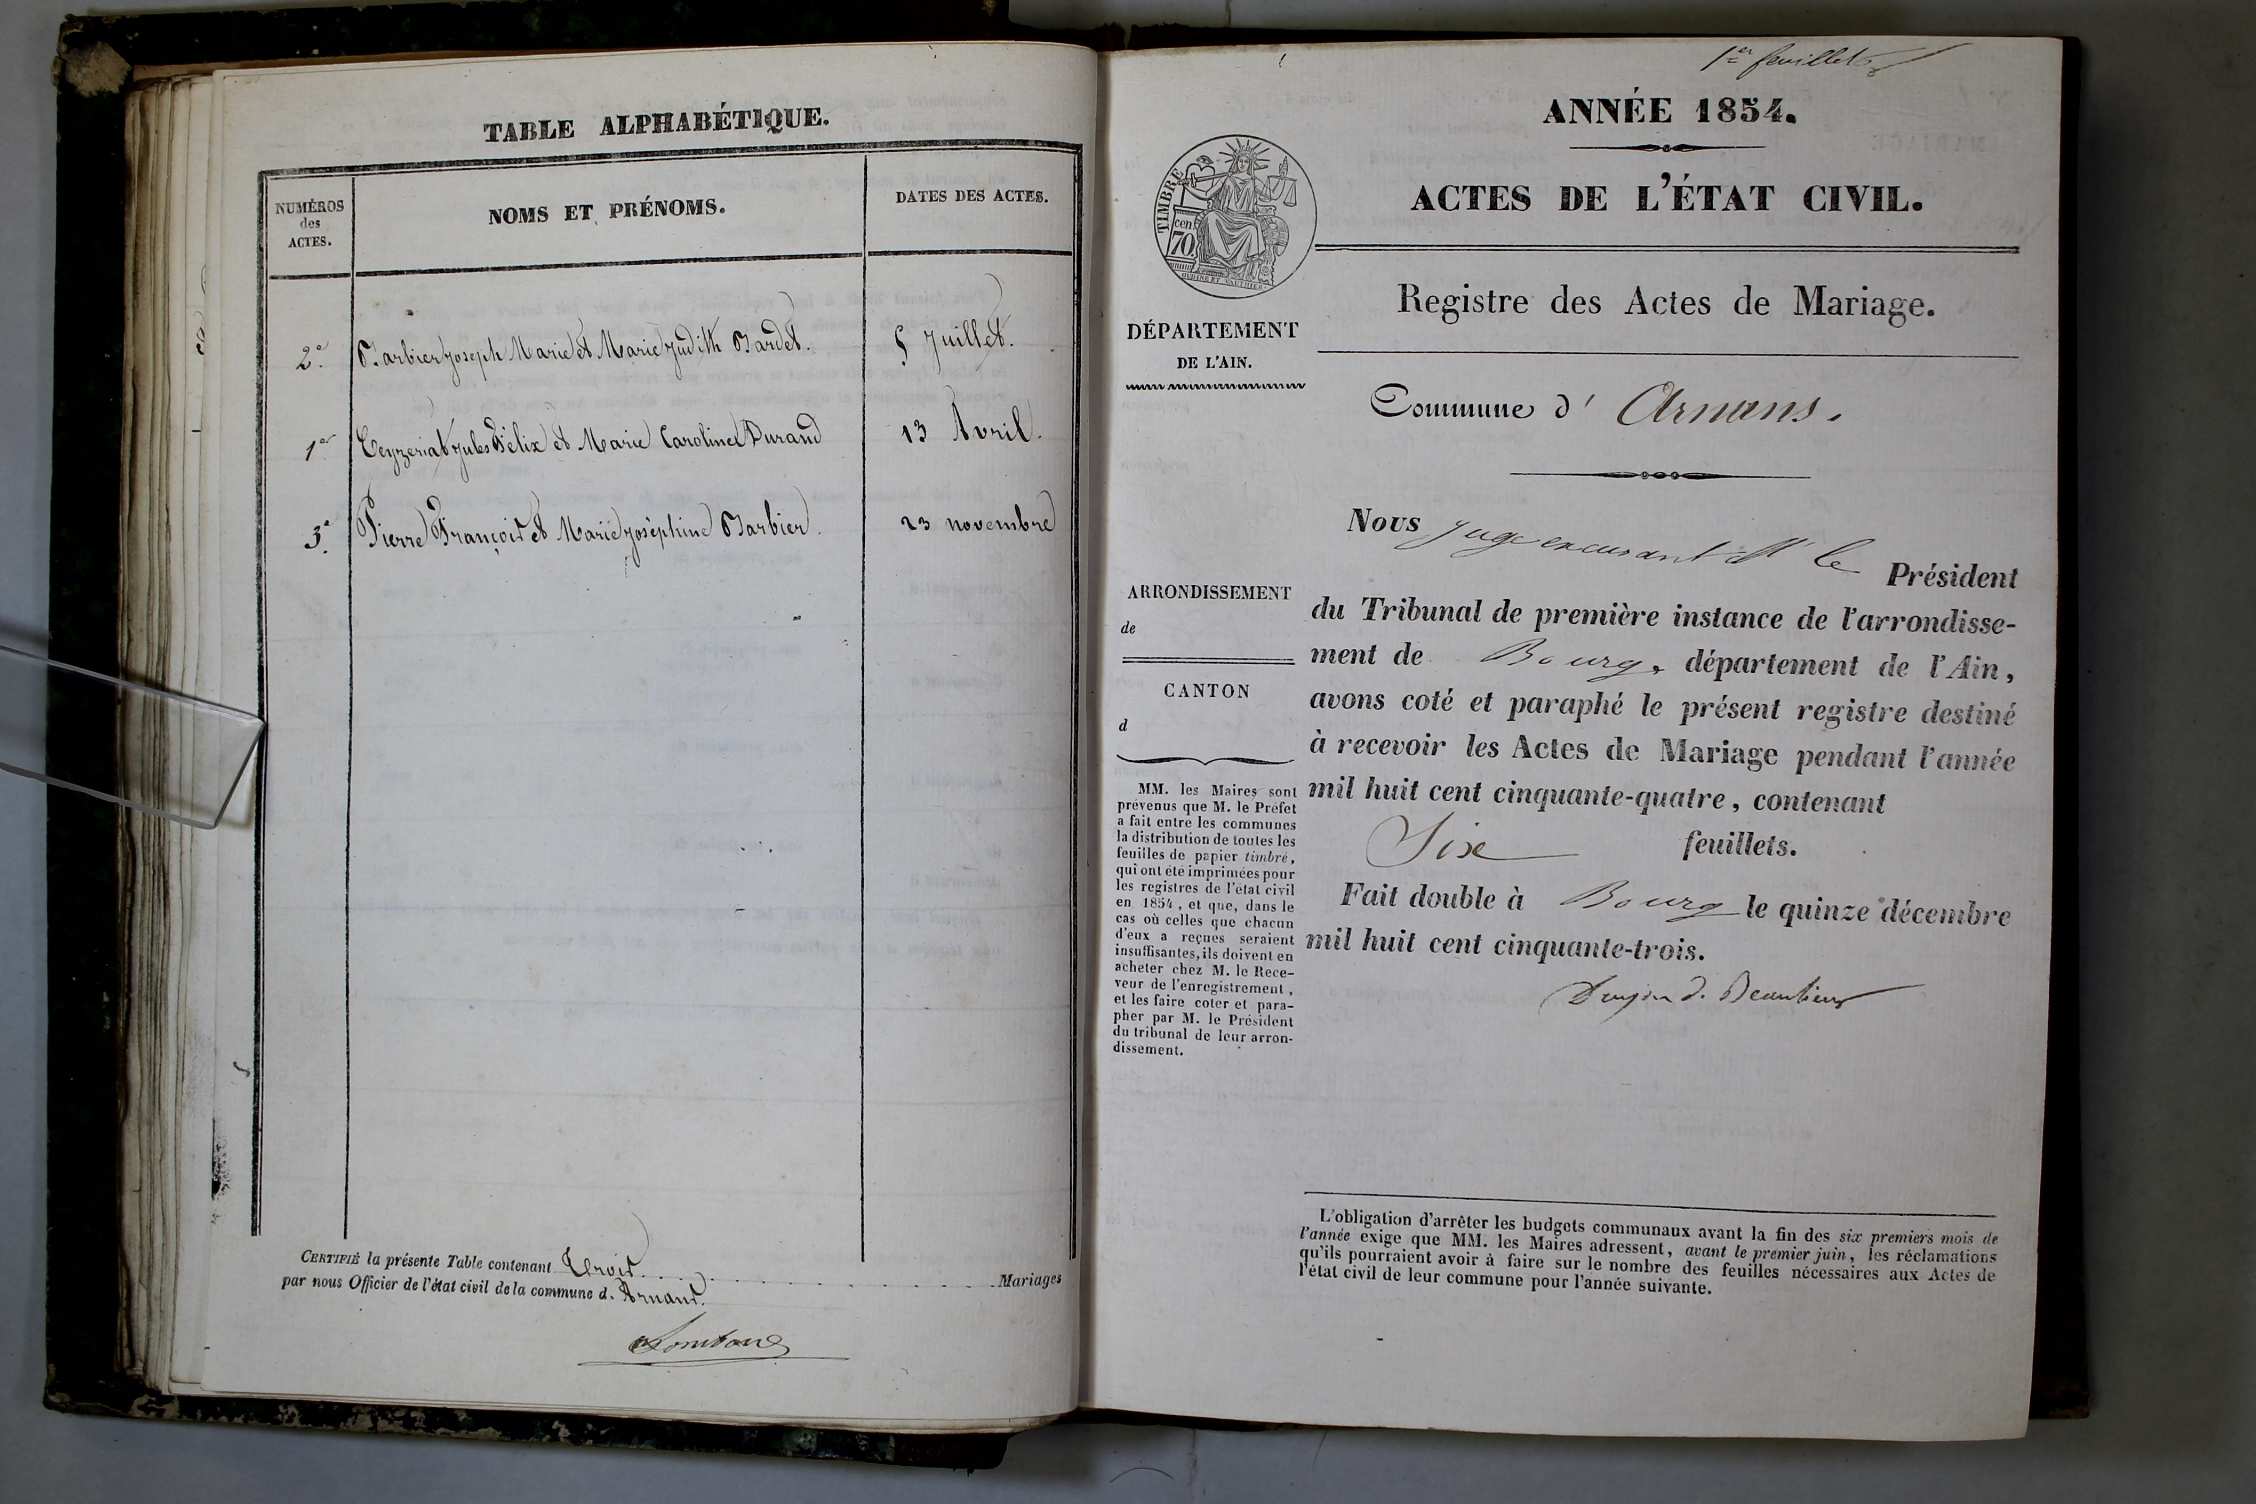 TABLE ALPHABÉTIQUE.
NUMÉROS
des
ACTES.
NOMS ET PRÉNOMS.
DATES DES ACTES.
2e Barbier Joseph Marie et Marie Judith Bardet. 5 Juillet.
1er Ceyzeriat Jules Félix et Marie Caroline Durand 13 Avril.
3e Pierre François et Marie Joséphine Barbier. 23 novembre
CERTIFIÉ la présente Table contenant trois Mariages
par nous Officier de l'état civil de la commune d. Arnans.
1er feuillet
ANNÉE 1854.
ACTES DE L'ÉTAT CIVIL.
TIMBRE
cen
70
Registre des Actes de Mariage.
DÉPARTEMENT
DE L'AIN.
Commune d' Arnans.
Nous Juge excusant M le Président
du Tribunal de première instance de l'arrondisse-
ment de Bourg, département de l'Ain,
avons coté et paraphé le présent registre destiné
à recevoir les Actes de Mariage pendant l'année
mil huit cent cinquante-quatre, contenant
Six feuillets.
Fait double à Bourg le quinze décembre
mil huit cent cinquante-trois.
ARRONDISSEMENT
de
CANTON
d
MM. les Maires sont
prévenus que M. le Préfet
a fait entre les communes
la distribution de toutes les
feuilles de papier timbré,
qui ont été imprimées pour
les registres de l'état civil
en 1854, et que, dans le
cas où celles que chacun
d'eux a reçues seraient
insuffisantes, ils doivent en
acheter chez M. le Rece-
veur de l'enregistrement,
et les faire coter et para-
pher par M. le Président
du tribunal de leur arron-
dissement.
L'obligation d'arrêter les budgets communaux avant la fin des six premiers mois de
l'année exige que MM. les Maires adressent, avant le premier juin, les réclamations
qu'ils pourraient avoir à faire sur le nombre des feuilles nécessaires aux Actes de
l'état civil de leur commune pour l'année suivante.